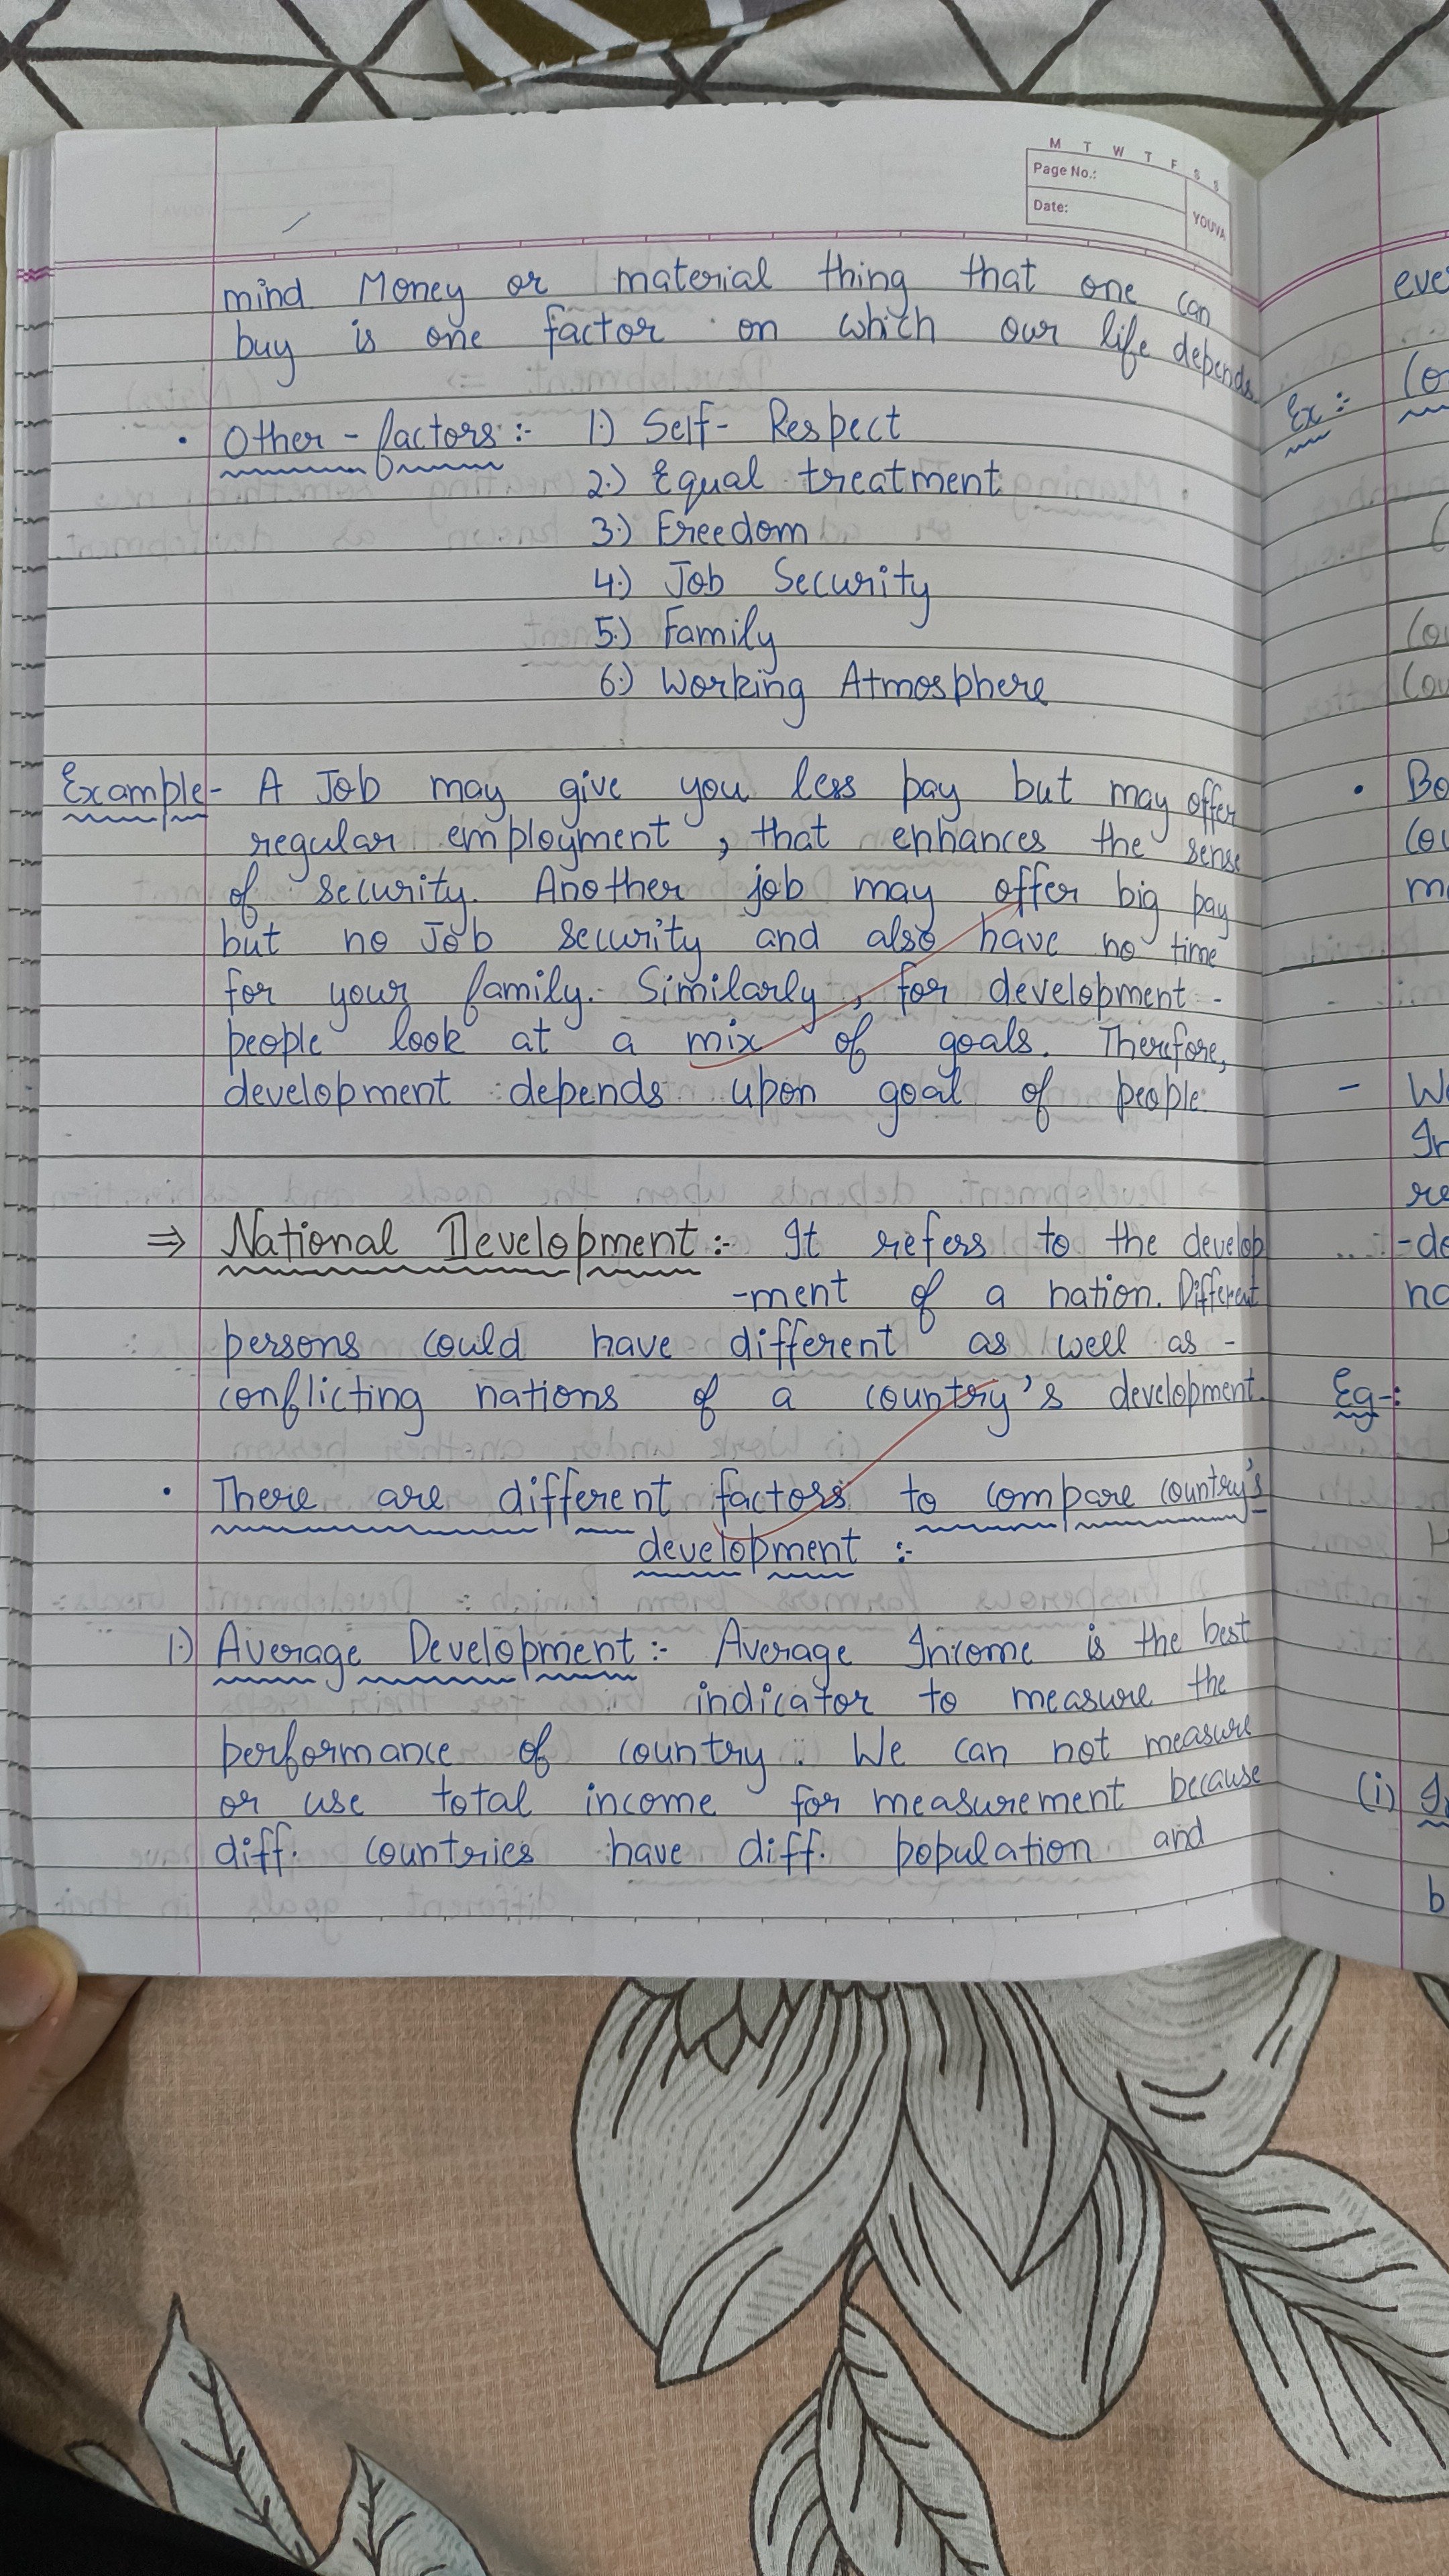 M T W T F S S
Page No.:
Date:
YOUVA
mind Money or material thing that one can
buy is one factor on which our life depends
• Other - factors :- 1.) Self- Respect
2.) Equal treatment
3.) Freedom
4.) Job Security
5.) Family
6.) Working Atmosphere
Example- A Job may give you less pay but may offer
regular employment, that enhances the sense
of security. Another job may offer big pay
but no Job security and also have no time
for your family. Similarly, for development -
people look at a mix of goals. Therefore,
development depends upon goal of people.
⇒ National Development :- It refers to the develop
-ment of a nation. Different
persons could have different as well as -
conflicting nations of a country's development.
• There are different factors to compare country's
development :-
1.) Average Development :- Average Income is the best
indicator to measure the
performance of country. We can not measure
or use total income for measurement because
diff. countries have diff. population and
Ex :-
• Bo
- We
Eg-:
(i)